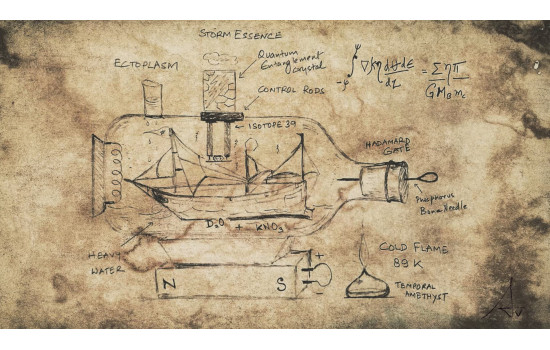 STORM ESSENCE
ECTOPLASM
Quantum
Entanglement
Crystal
CONTROL RODS
ISOTOPE 39
HADAMARD
GATE
Phosphorus
Bone Needle
D₂O + KNO₃
HEAVY
WATER
N S
+
COLD FLAME
89 K
TEMPORAL
AMETHYST